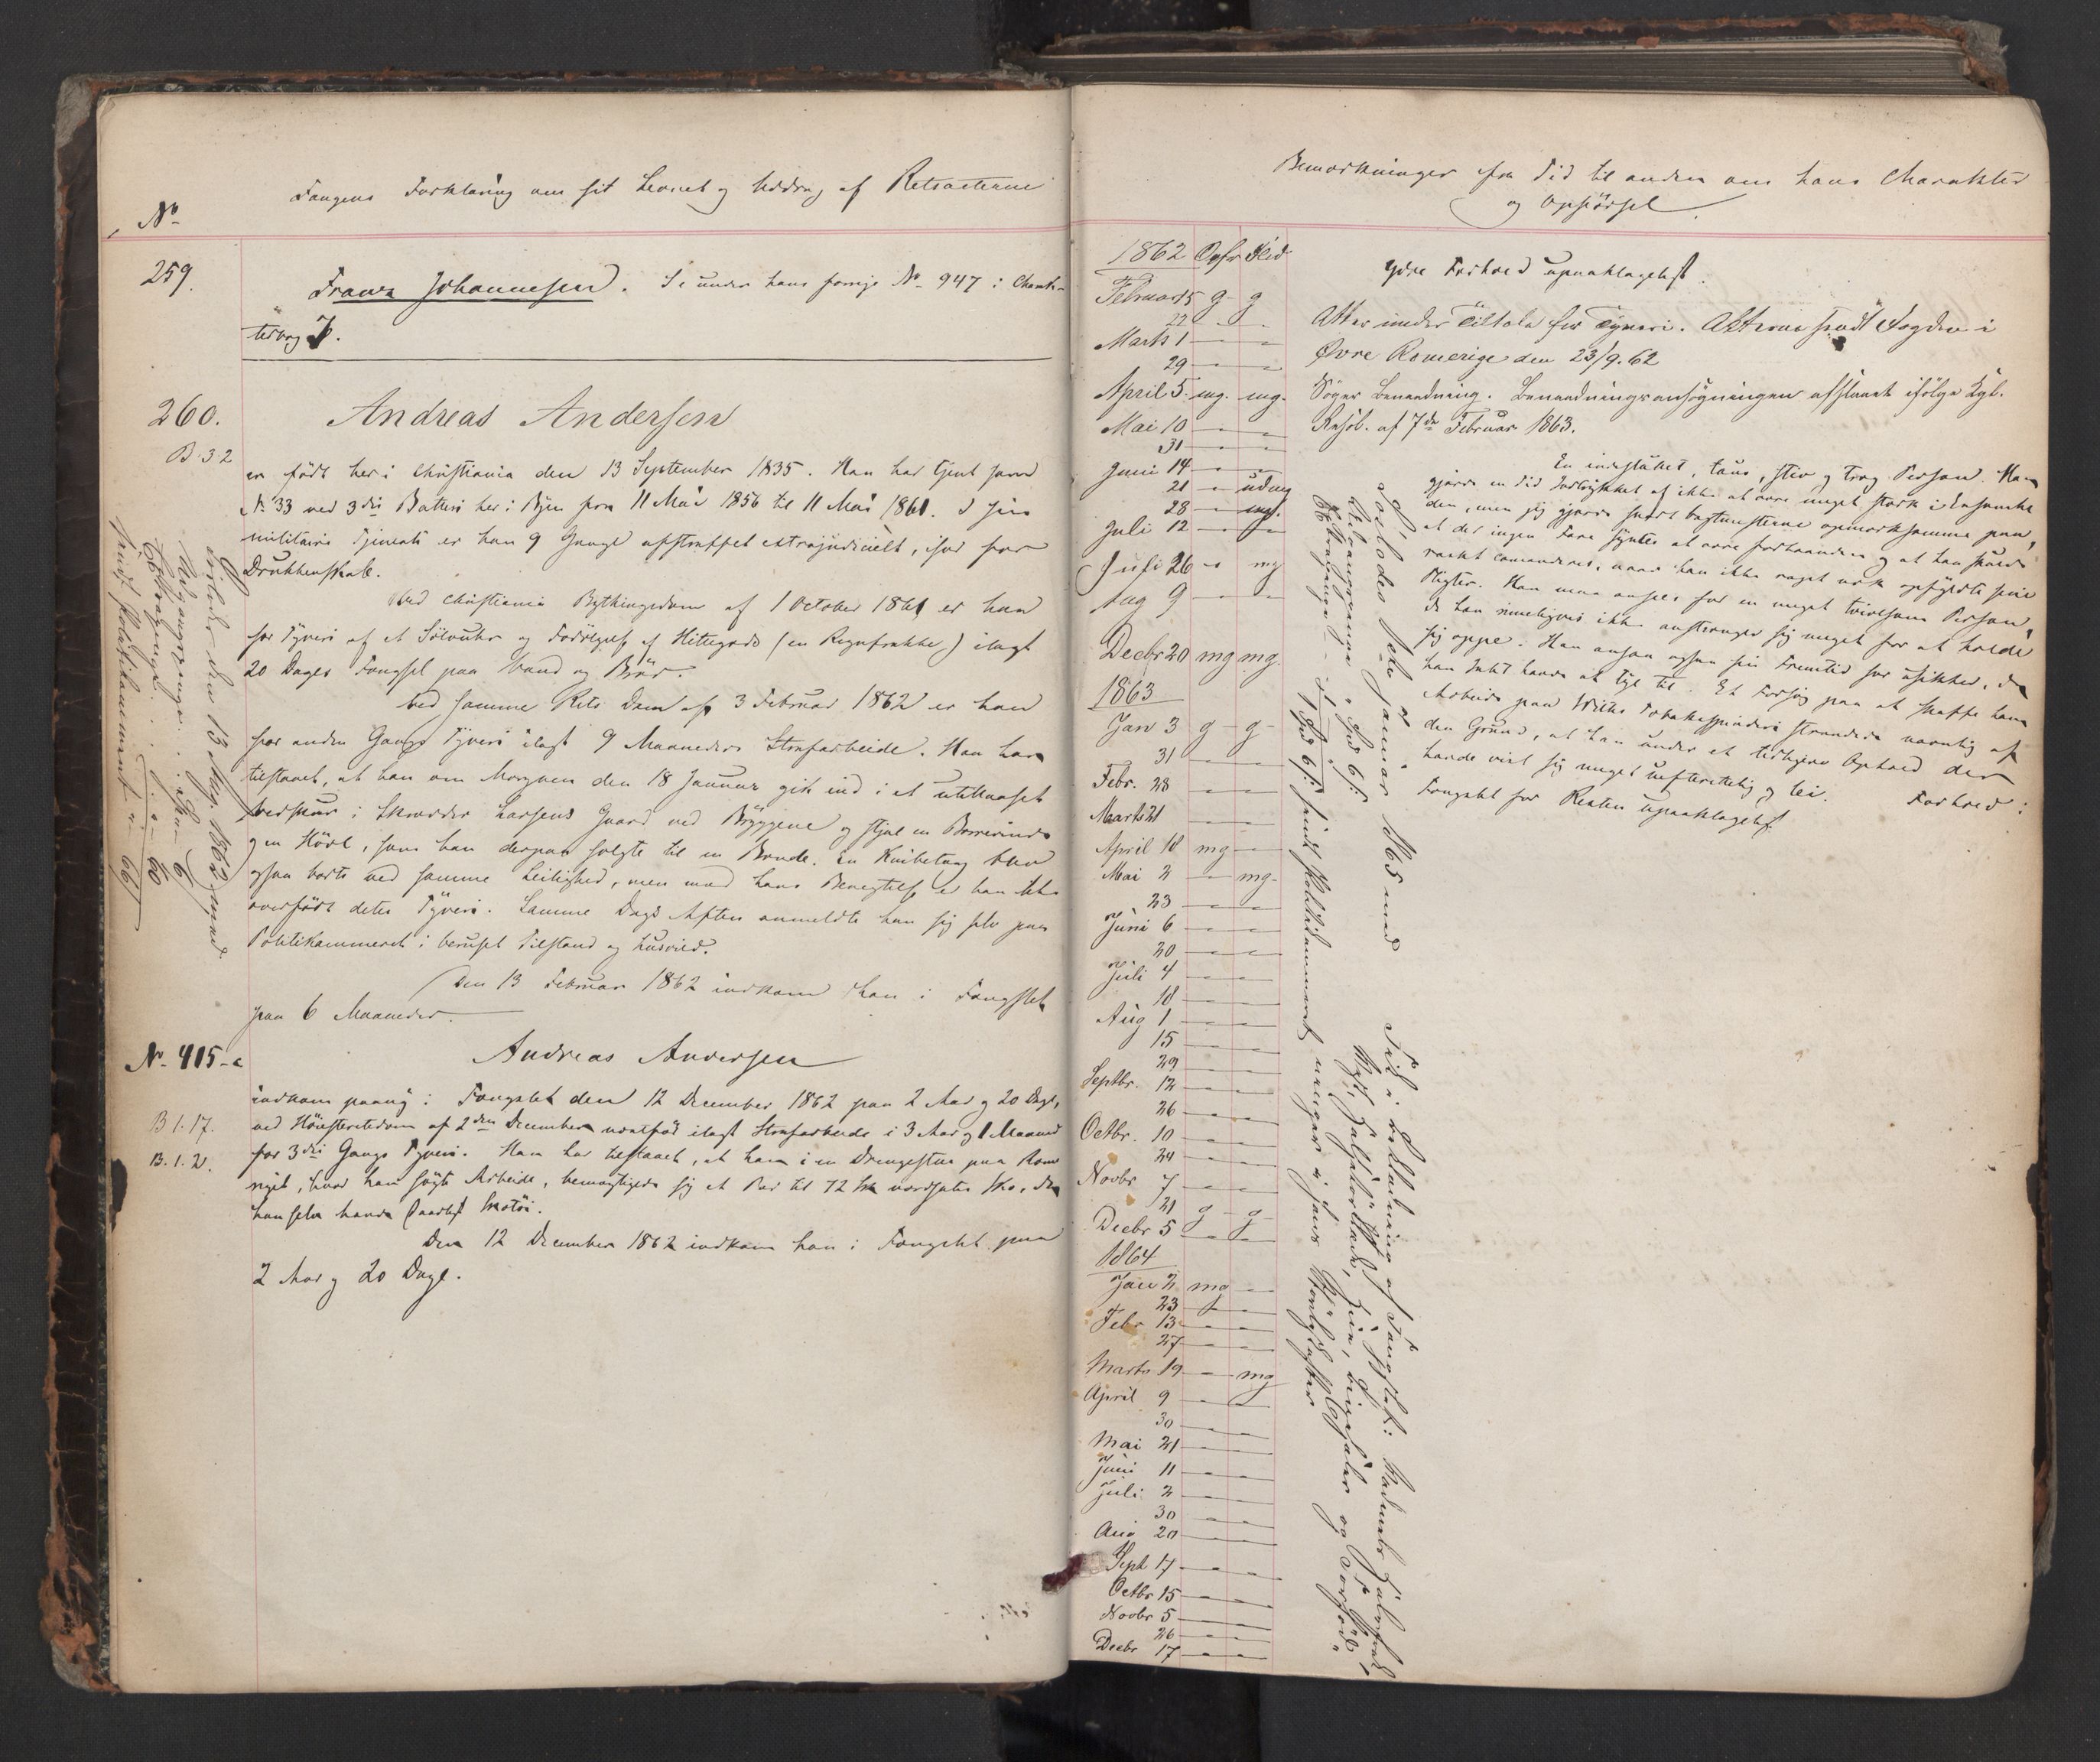 No
Fangens Forklaring om sit Levnet og Uddrag af Retsacterne
259.
Frantz Johannesen. Se under hans forrige No 947 i Charak-
terbog 7.
260.
B. 32
Andreas Andersen
er født her i Christiania den 13 September 1835. Han har tjent som
No 33 ved 3die Batteri her i Byen fra 11 Mai 1856 til 11 Mai 1861. I sin
militaire Tjeneste er han 9 Gange afstraffet extrajudicielt, især for
Drukkenskab.
Ved Christiania Bythingsdom af 1 October 1861 er han
for Tyveri af et Sølvuhr og Fordølgelse af Hittegods (en Regnfrakke) ilagt
20 Dages Fængsel paa Vand og Brød.
Ved samme Rets Dom af 3 Februar 1862 er han
for anden Gangs Tyveri ilagt 9 Maaneders Strafarbeide. Han har
tilstaaet, at han om Morgenen den 18 Januar gik ind i et uaflaaset
Vedskur i Skræder Larsens Gaard ved Bryggene og stjal en
og en Høvl, som han derpaa solgte til en Bonde. En Knibetang blev
ogsaa borte ved samme Leilighed, men mod hans Benegtelse er han ikke
overført dette Tyveri. Samme Dags Aften anmeldte han sig selv paa
Politikammeret i beruset Tilstand og husvild.
Den 13 Februar 1862 indkom han i Fængslet
paa 6 Maaneder.
Løslades den 13 Aug. 1862 med
Udgangspenge
Extrapenge
sendt Politikammeret
No. 415-a
B 1. 17.
B. 1. 2.
Andreas Andersen
indkom paany i Fængslet den 12 December 1862 paa 2 Aar og 20 Dage,
ved Høiesteretsdom af 2den December ilagt Strafarbeide i 3 Aar og 1 Maaned
for 3die Gangs Tyveri. Han har tilstaaet, at han i en Drengestue paa Rome
riget, hvor han søgte Arbeide, bemægtigede sig et Par til 72 Sk vurderede Sko, da
han selv havde daarligt Skotøi.
Den 12 December 1862 indkom han i Fængslet paa
2 Aar og 20 Dage.
Bemærkninger fra Tid til anden om hans Charakter
og Opførsel.
1862 Opfr Flid
Februar 15 g g
22 - -
Marts 1 - -
29 - -
April 5. mg. mg.
Mai 10 - -
31 - -
Juni 14 - -
21 - udmg
28 - mg.
Juli 12 - -
Juli 26 - mg
Aug 9 - -
Decbr 20 mg mg.
1863
Jan 3 g g
31 - -
Febr. 28 - -
Marts 21 - -
April 18 mg -
Mai 2 - mg
23 - -
Juni 6 - -
20 - -
Juli 4 - -
18 - -
Aug 1 - -
15 - -
29 - -
Septbr. 12 - -
26 - -
Octbr. 10 - -
24 - -
Novbr 7 - -
21 g g
Decbr 5 - -
1864
Jan 2 mg -
23 - -
Febr 13 - -
27 - -
Marts 19 - mg
April 9 - -
30 - -
Mai 21 - -
Juni 11 - -
Juli 2 - -
30 - -
Aug 20 - -
Sept 17 - -
Octbr 15 - -
Novbr 5 - -
26 - -
Decbr 17 - -
Ydre Forhold upaaklageligt.
Atter under Tiltale for Tyveri. Akterne sendt Fogden i
Øvre Romerige den 23/9. 62
Søger Benaadning. Benaadningsansøgningen afslaaet ifølge Kgl.
Resol. af 7de Februar 1863.
En indesluttet, taus, stiv og træg Person. Han
gjorde en Tid Indtrykket af ikke at være meget stærk i Ensomhe
den, men jeg gjorde snart opmærksomme paa,
at der ingen Fare syntes at være forhaanden og at han skulde
raskt commanderes, naar han ikke raskt nok opfyldte sine
Pligter. Han maa ansees for en meget tvivlsom Person,
da han rimeligvis ikke anstrenger sig meget for at holde
sig oppe. Han ansaa ogsaa sin Fremtid for usikker, da
han Intet havde at tye til. Et Forsøg paa at skaffe ham
Arbeide paa Tobakspinderi strandede navnlig af
den Grund, at han under et tidligere Ophold der
havde vist sig meget uefterrettelig og lei. Forhold i
Fængslet for Resten upaaklageligt.
Løslades 2den Januar 1865 med
Udgangspenge
Extrapenge
sendt Politikammeret